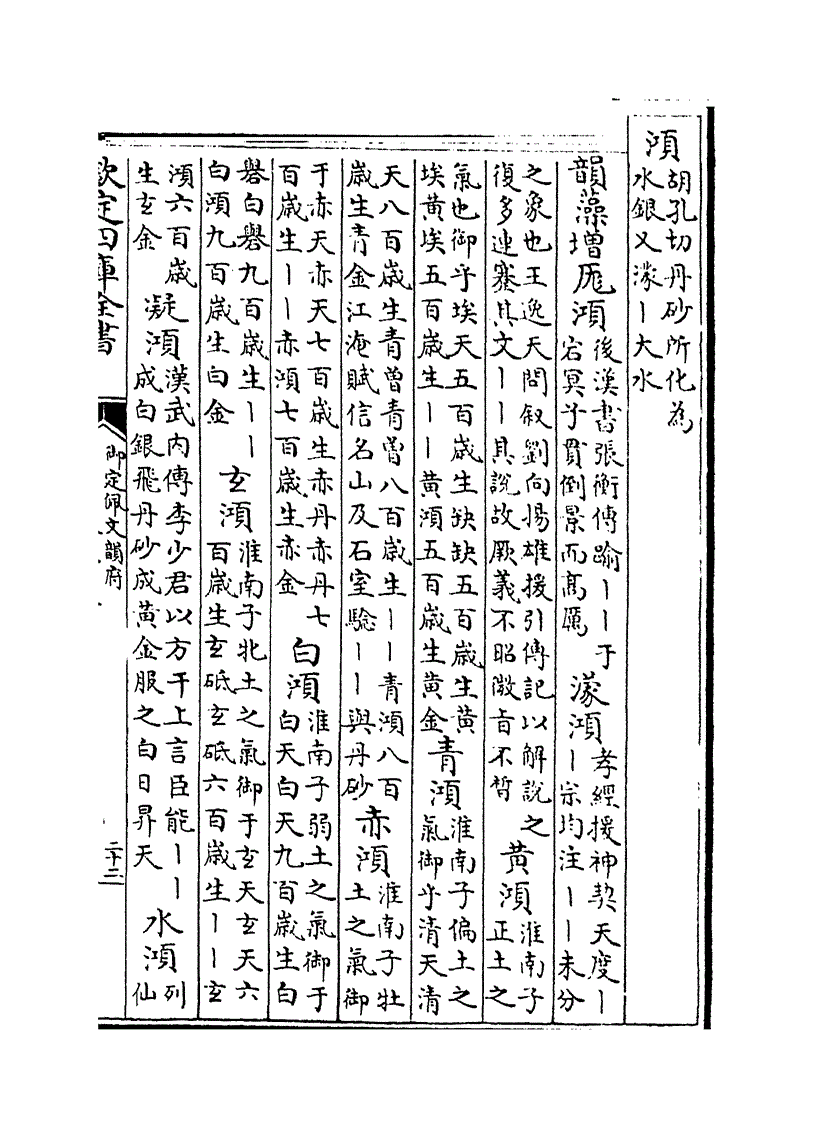 澒
胡孔切丹砂所化為
水銀又濛丨大水
韻藻增厖澒
後漢書張衡傳踰丨丨于
宕冥兮貫倒景而髙厲
濛澒
孝經援神契天度丨
丨宗均注丨丨未分
之象也王逸天問叙劉向揚雄援引傳記以解說之
復多連蹇其文丨丨其說故厥義不昭微旨不晢
黃澒
淮南子
正土之
氣也御乎埃天五百歳生缺缺五百歳生黃
埃黃埃五百歳生丨丨黃澒五百歳生黃金
青澒
淮南子偏土之
氣御乎清天清
天八百歳生青曽青曽八百歳生丨丨青澒八百
歳生青金江淹賦信名山及石室驗丨丨與丹砂
赤澒
淮南子牡
土之氣御
于赤天赤天七百歳生赤丹赤丹七
百歳生丨丨赤澒七百歳生赤金
白澒
淮南子弱土之氣御于
白天白天九百歳生白
礜白礜九百歳生丨丨
白澒九百歳生白金
玄澒
淮南子牝土之氣御于玄天玄天六
百歳生玄砥玄砥六百歳生丨丨玄
澒六百歳
生玄金
凝澒
漢武内傳李少君以方干上言臣能丨丨
成白銀飛丹砂成黃金服之白日昇天
水澒
列
仙
欽定四庫全書
御定佩文韻府
二十三